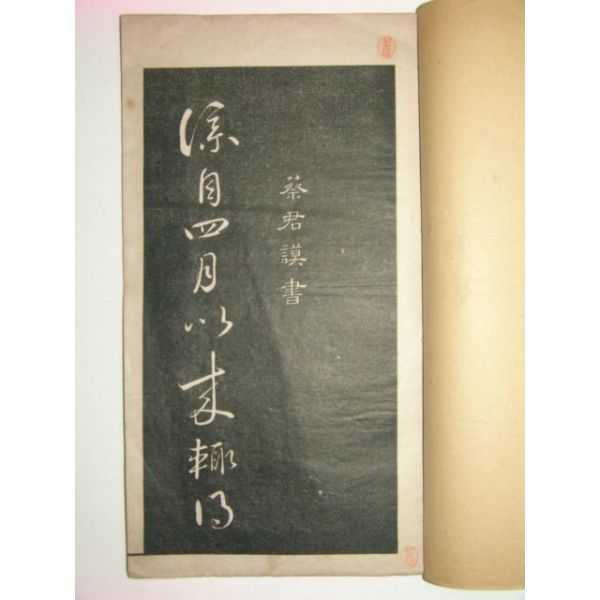 蔡君謨書
僕自四月以來輒得